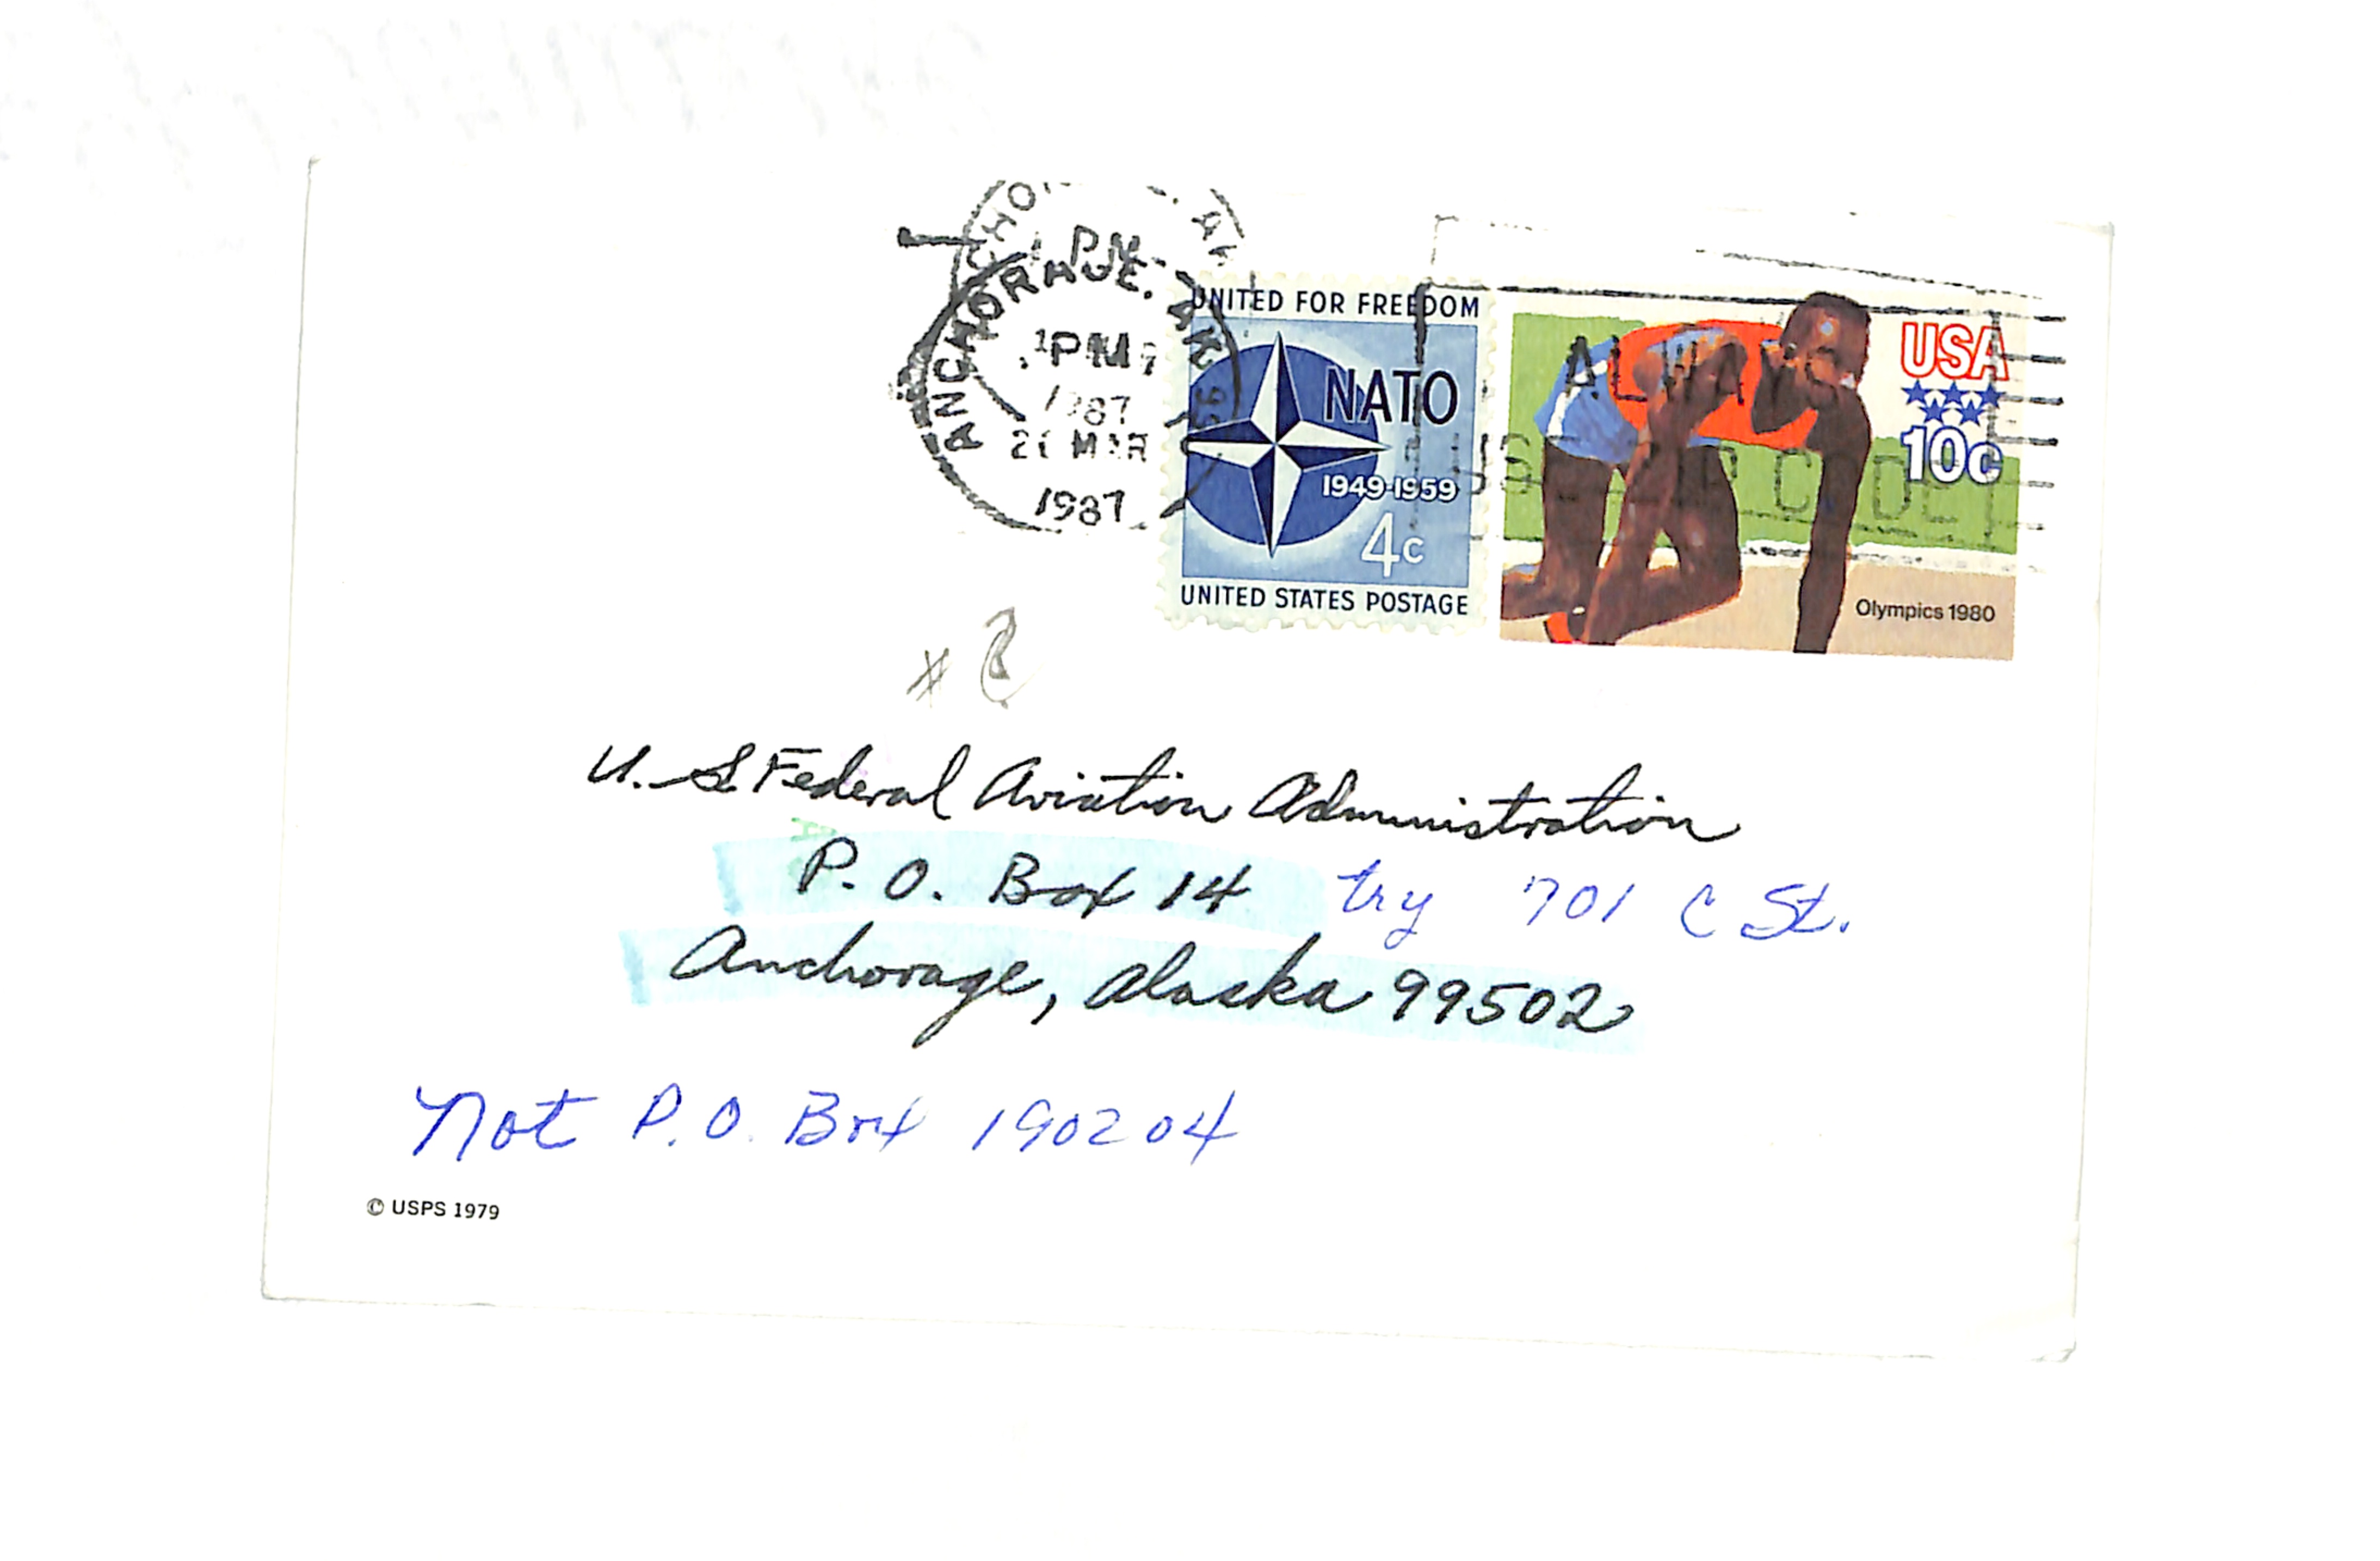 P.M.
ANCHORAGE, AK
1PM
1987
21 MAR
1987
UNITED FOR FREEDOM
NATO
1949-1959
4c
UNITED STATES POSTAGE
ALWAYS
USE ZIP CODE
USA
10c
Olympics 1980
U.S. Federal Aviation Administration
P.O. Box 14 try 701 C St.
Anchorage, Alaska 99502
Not P.O. Box 190204
© USPS 1979